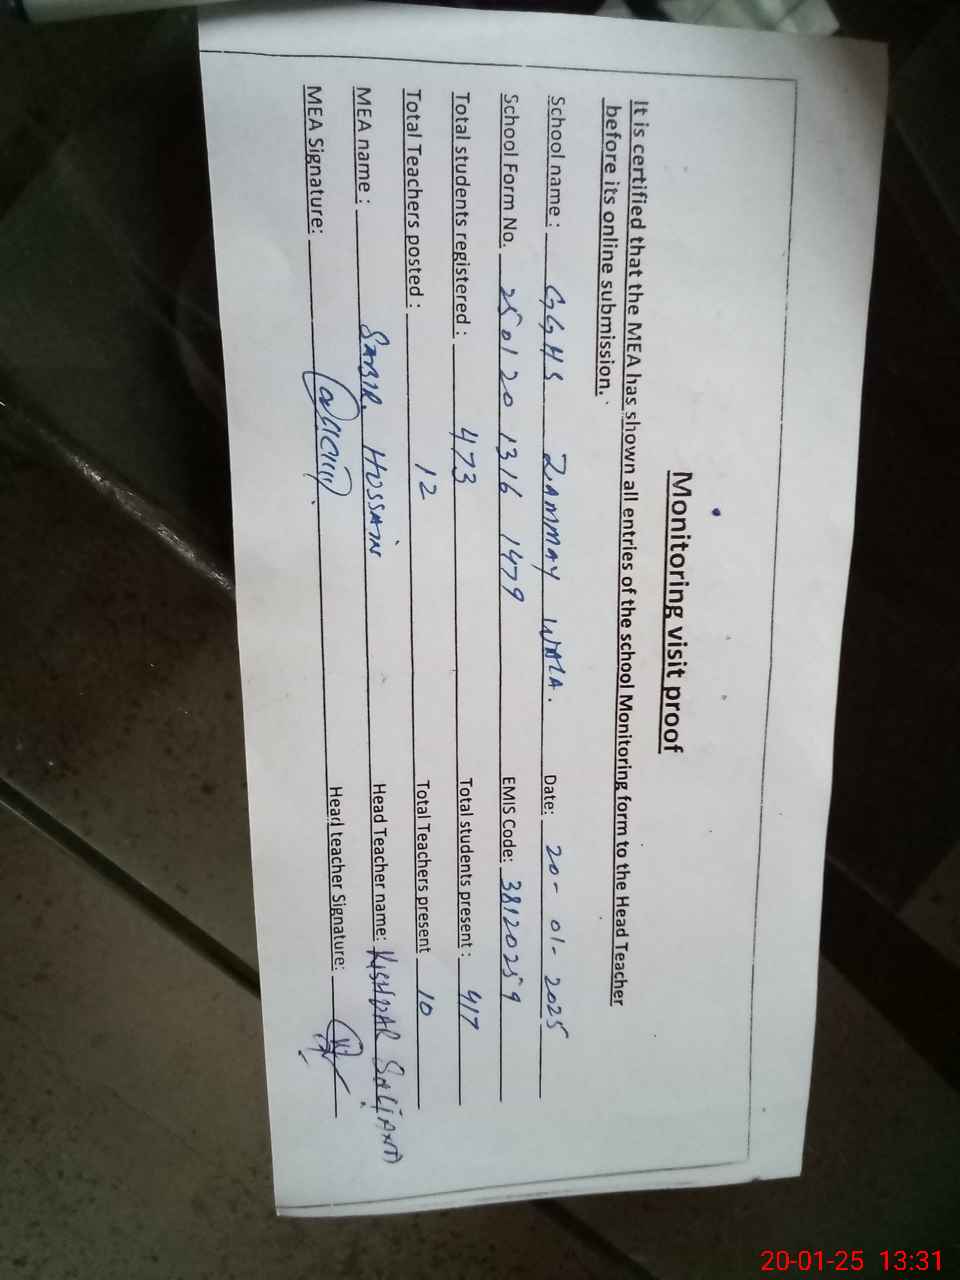 Monitoring visit proof
It is certified that the MEA has shown all entries of the school Monitoring form to the Head Teacher
before its online submission.
School name : GGHS ZAMMAY WALA. Date: 20-01-2025
School Form No. 250120 1316 1479 EMIS Code: 38120259
Total students registered : 473 Total students present : 417
Total Teachers posted : 12 Total Teachers present 10
MEA name : SABIR HUSSAIN Head Teacher name: KISHWAR
MEA Signature: Head teacher Signature:
20-01-25 13:31